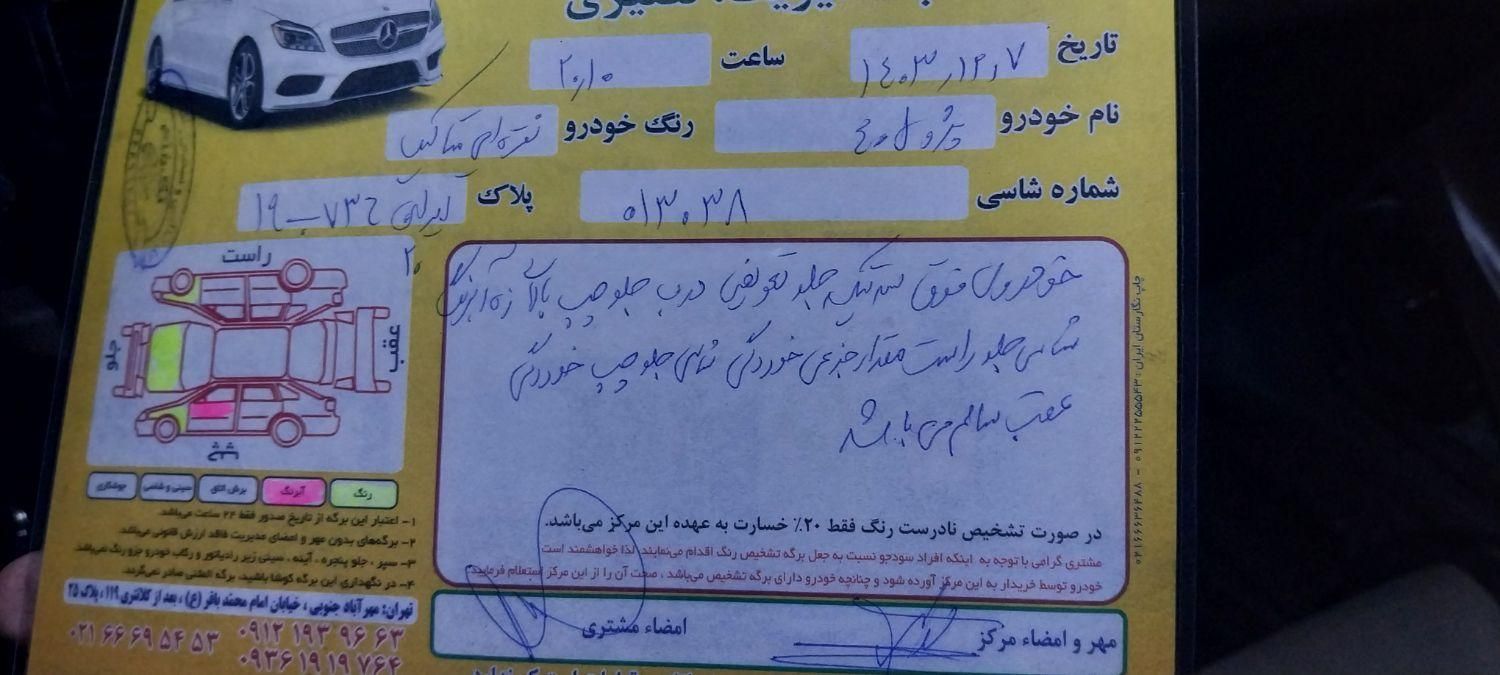 تاریخ ۱۴۰۳٫۱۲٫۷ ساعت ۲۰٫۱۰
نام خودرو پژو رنگ خودرو نقره‌ای متالیک
شماره شاسی ۰۱۳۰۳۸ پلاک ۱۹ - ۷۳
۲۰
راست
جلو
عقب
چپ
رنگ آبرنگ برش اتاق سینی و شاسی جوشکاری
خودروی فوق سه تیکه جلو تعویض درب جلو چپ بالا زه آبرنگ
شاسی جلو راست مقدار جزعی خوردگی شاسی جلو چپ خوردگی
عقب سالم می باشد
در صورت تشخیص نادرست رنگ فقط ۲۰٪ خسارت به عهده این مرکز می‌باشد.
مشتری گرامی با توجه به اینکه افراد سودجو نسبت به جعل برگه تشخیص رنگ اقدام می‌نمایند لذا خواهشمند است
خودرو توسط خریدار به این مرکز آورده شود و چنانچه خودرو دارای برگه تشخیص می‌باشد ، صحت آن را از این مرکز استعلام فرمایید.
۱- اعتبار این برگه از تاریخ صدور فقط ۲۴ ساعت می‌باشد.
۲- برگه‌های بدون مهر و امضای مدیریت فاقد ارزش قانونی می‌باشد.
۳- سپر ، جلو پنجره ، آینه ، سینی زیر رادیاتور و رکاب خودرو جزو رنگ نمی‌باشد.
۴- در نگهداری این برگه کوشا باشید، برگه المثنی صادر نمی‌گردد.
تهران: مهرآباد جنوبی ، خیابان امام محمد باقر (ع) ، بعد از کلانتری ۱۱۹ ، پلاک ۲۵
۰۲۱ ۶۶ ۶۹ ۵۴ ۵۳ ۰۹۱۲ ۱۹۳ ۹۶ ۶۳
۰۹۳۶ ۱۹ ۱۹ ۷۶۴
مهر و امضاء مرکز امضاء مشتری
چاپ نگارستان ایران : ۰۹۱۲۲۲۵۵۵۴۳ - ۰۲۱۶۶۶۳۶۴۸۸